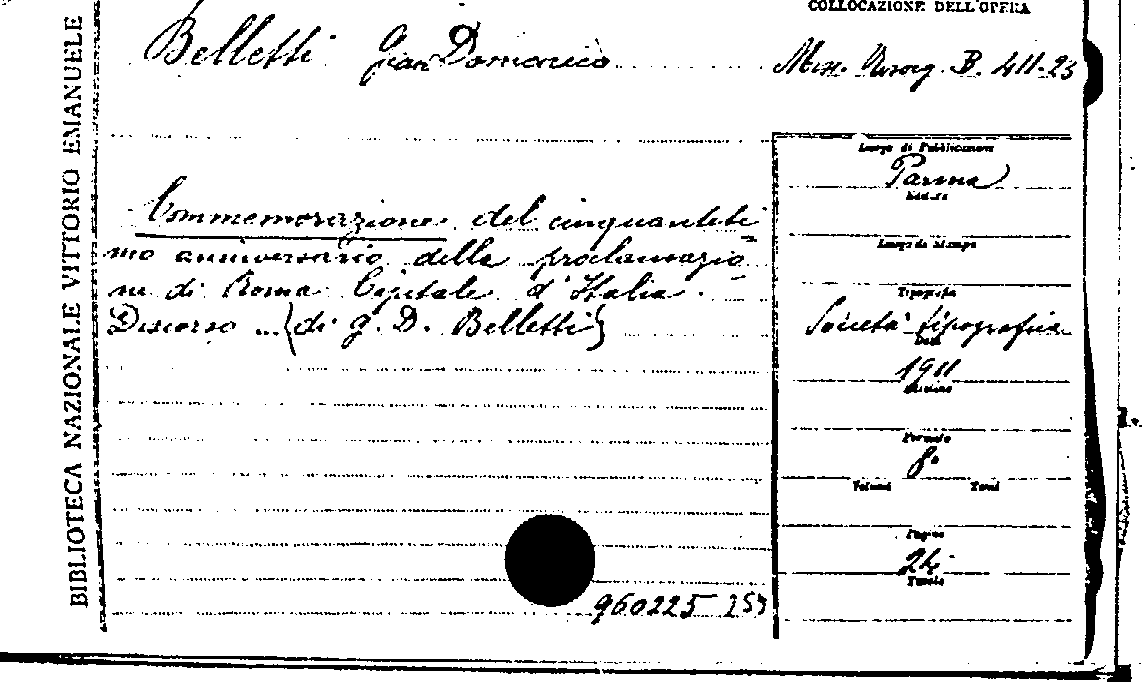 COLLOCAZIONE DELL'OPERA
Belletti Gian Domenico
Misc. Risorg. B. 411.23
BIBLIOTECA NAZIONALE VITTORIO EMANUELE
Commemorazione del cinquantesi=
mo anniversario della proclamazio=
ne di Roma Capitale d'Italia.
Discorso ... {di G. D. Belletti}
Luogo di Pubblicazione
Parma
Editore
Luogo di Stampa
Tipografia
Società tipografica
Data
1911
Edizione
Formato
8°
Volumi Tomi
Pagine
24
Tavole
960225 253